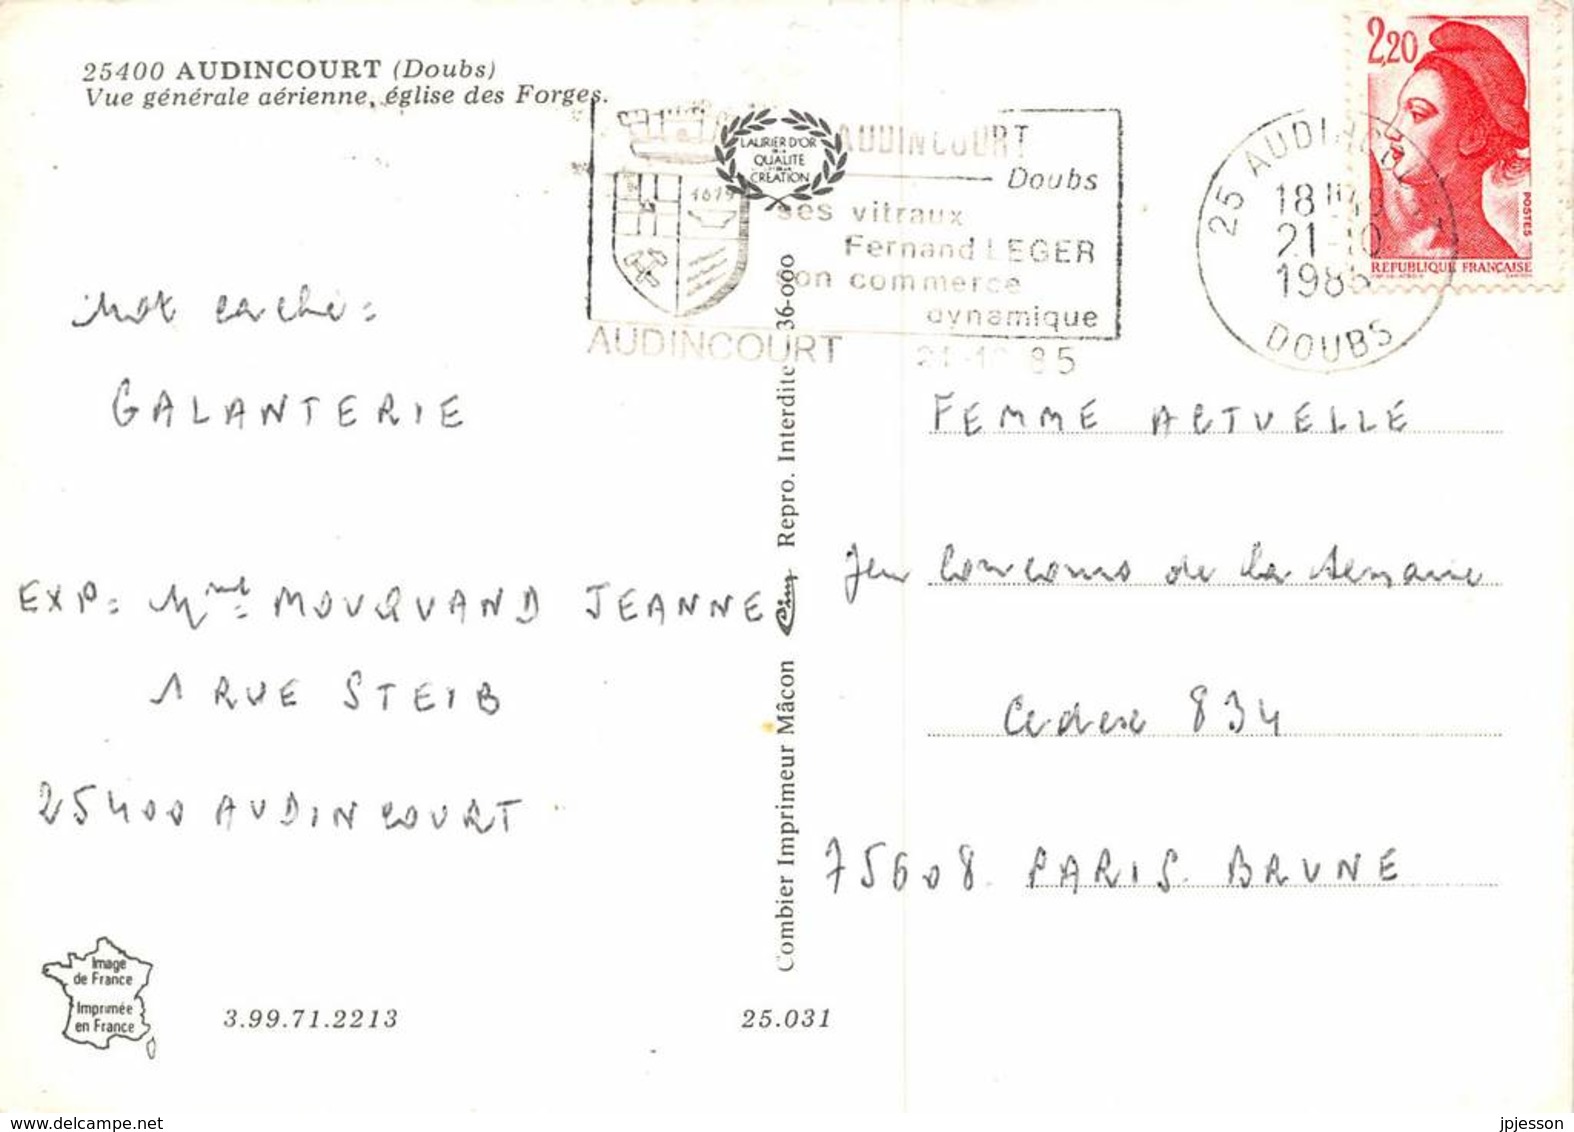 25400 AUDINCOURT (Doubs)
Vue générale aérienne, église des Forges.
2,20
POSTES
REPUBLIQUE FRANÇAISE
LAURIER D'OR
QUALITE
CREATION
1619
AUDINCOURT
Doubs
ses vitraux
Fernand LEGER
son commerce
dynamique
AUDINCOURT
85
25 AUDINCOURT
18 H
21-10
1985
DOUBS
Mot caché =
GALANTERIE
EXP = Mme MOUQUAND JEANNE
1 RUE STEIB
25400 AUDINCOURT
Combier Imprimeur Mâcon Cim Repro. Interdite 36-000
FEMME ACTUELLE
Jeu Concours de la semaine
Cedex 834
75608 PARIS BRUNE
Image
de France
Imprimée
en France
3.99.71.2213
25.031
delcampe.net
jpjesson